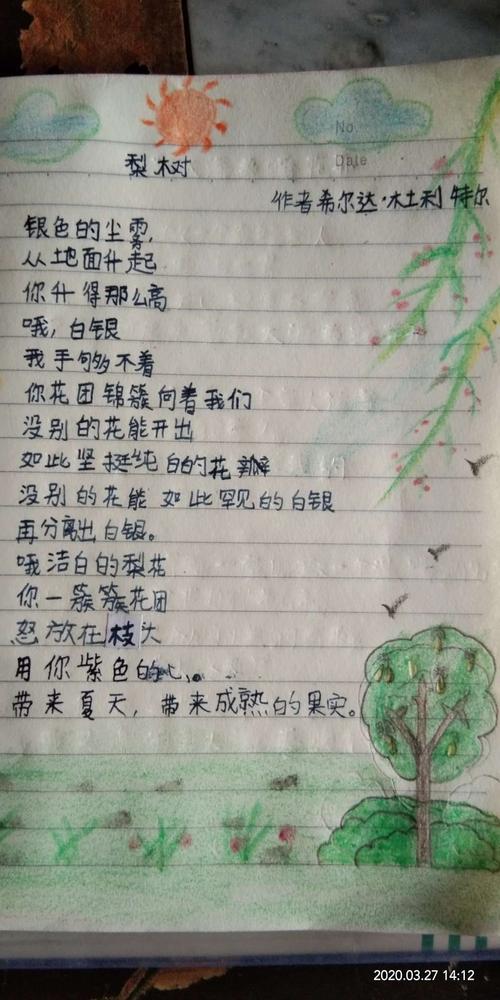 No.
Date
梨树
作者希尔达·杜利特尔
银色的尘雾,
从地面升起
你升得那么高
哦,白银
我手够不着
你花团锦簇向着我们
没别的花能开出
如此坚挺纯白的花瓣
没别的花能如此罕见的白银
再分离出白银。
哦洁白的梨花
你一簇簇花团
怒放在枝头
用你紫色的心。
带来夏天,带来成熟的果实。
2020.03.27 14:12